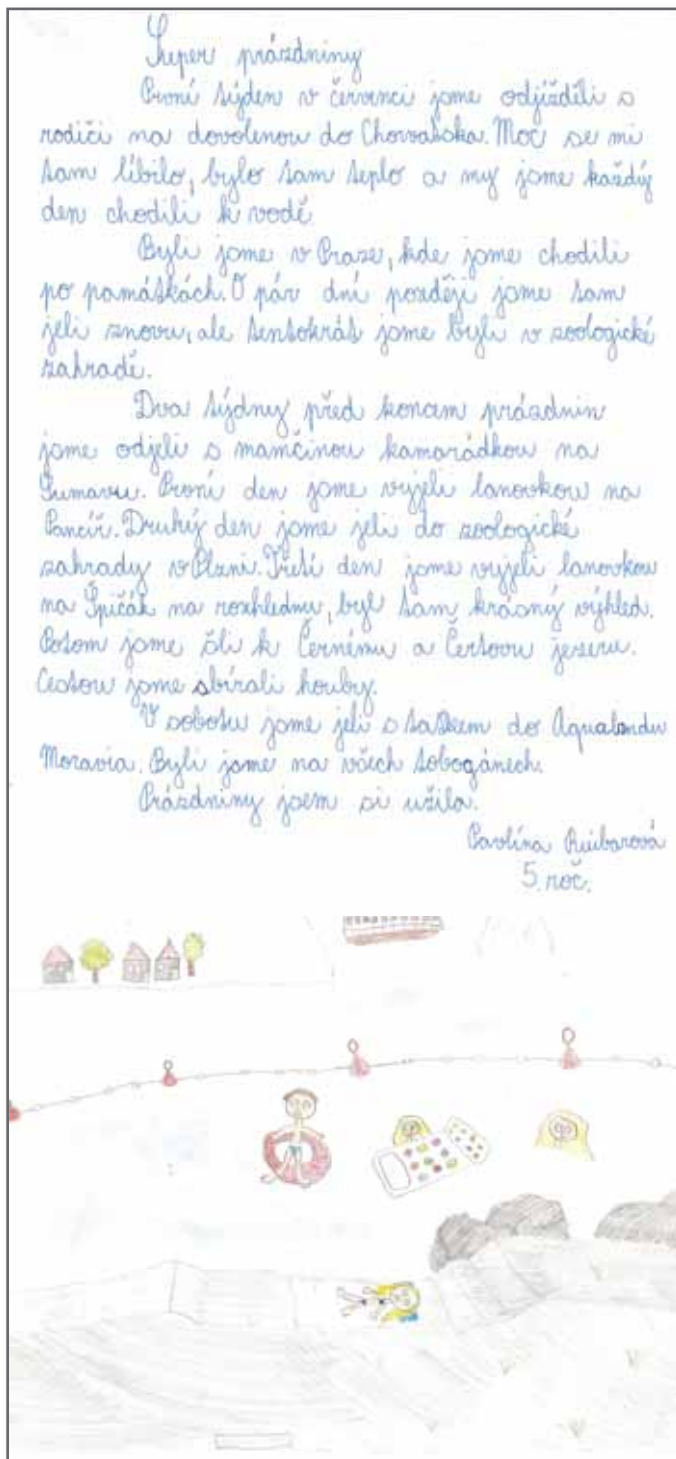 Super prázdniny
První týden v červenci jsme odjížděli s
rodiči na dovolenou do Chorvatska. Moc se mi
tam líbilo, bylo tam teplo a my jsme každý
den chodili k vodě.
Byli jsme v Praze, kde jsme chodili
po památkách. O pár dní později jsme tam
jeli znovu, ale tentokrát jsme byli v zoologické
zahradě.
Dva týdny před koncem prázdnin
jsme odjeli s mamčinou kamarádkou na
Šumavu. První den jsme vyjeli lanovkou na
Pancíř. Druhý den jsme jeli do zoologické
zahrady v Plzni. Třetí den jsme vyjeli lanovkou
na Špičák na rozhlednu, byl tam krásný výhled.
Potom jsme šli k Černému a Čertovu jezeru.
Cestou jsme sbírali houby.
V sobotu jsme jeli s taťkem do Aqualandu
Moravia. Byli jsme na všech tobogánech.
Prázdniny jsem si užila.
Pavlína Ruibarová
5. roč.